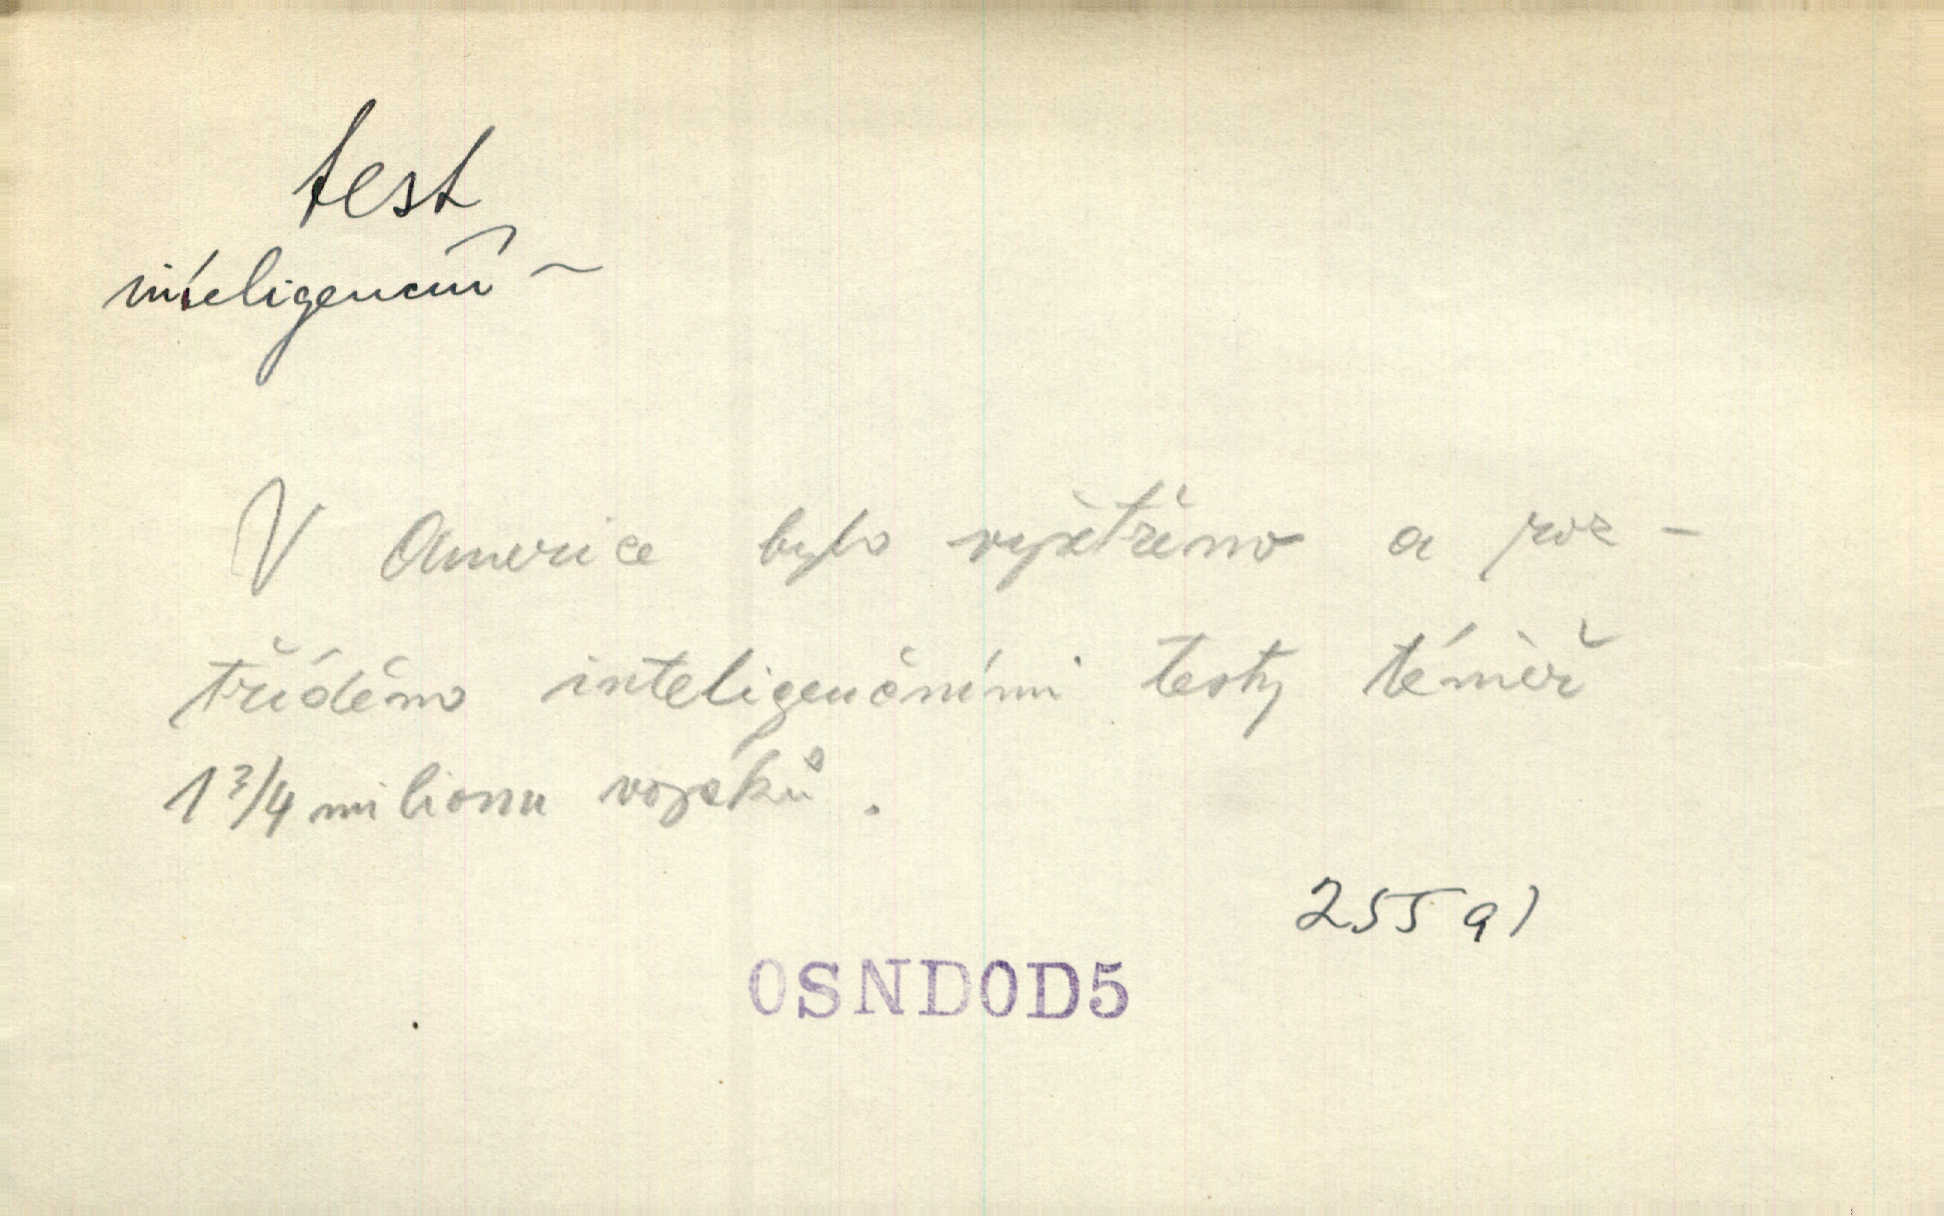 test
inteligenční ~
V Americe bylo vyšetřeno a roz-
tříděno inteligenčními testy téměř
1 3/4 milionu vojáků.
255 a)
OSND0D5